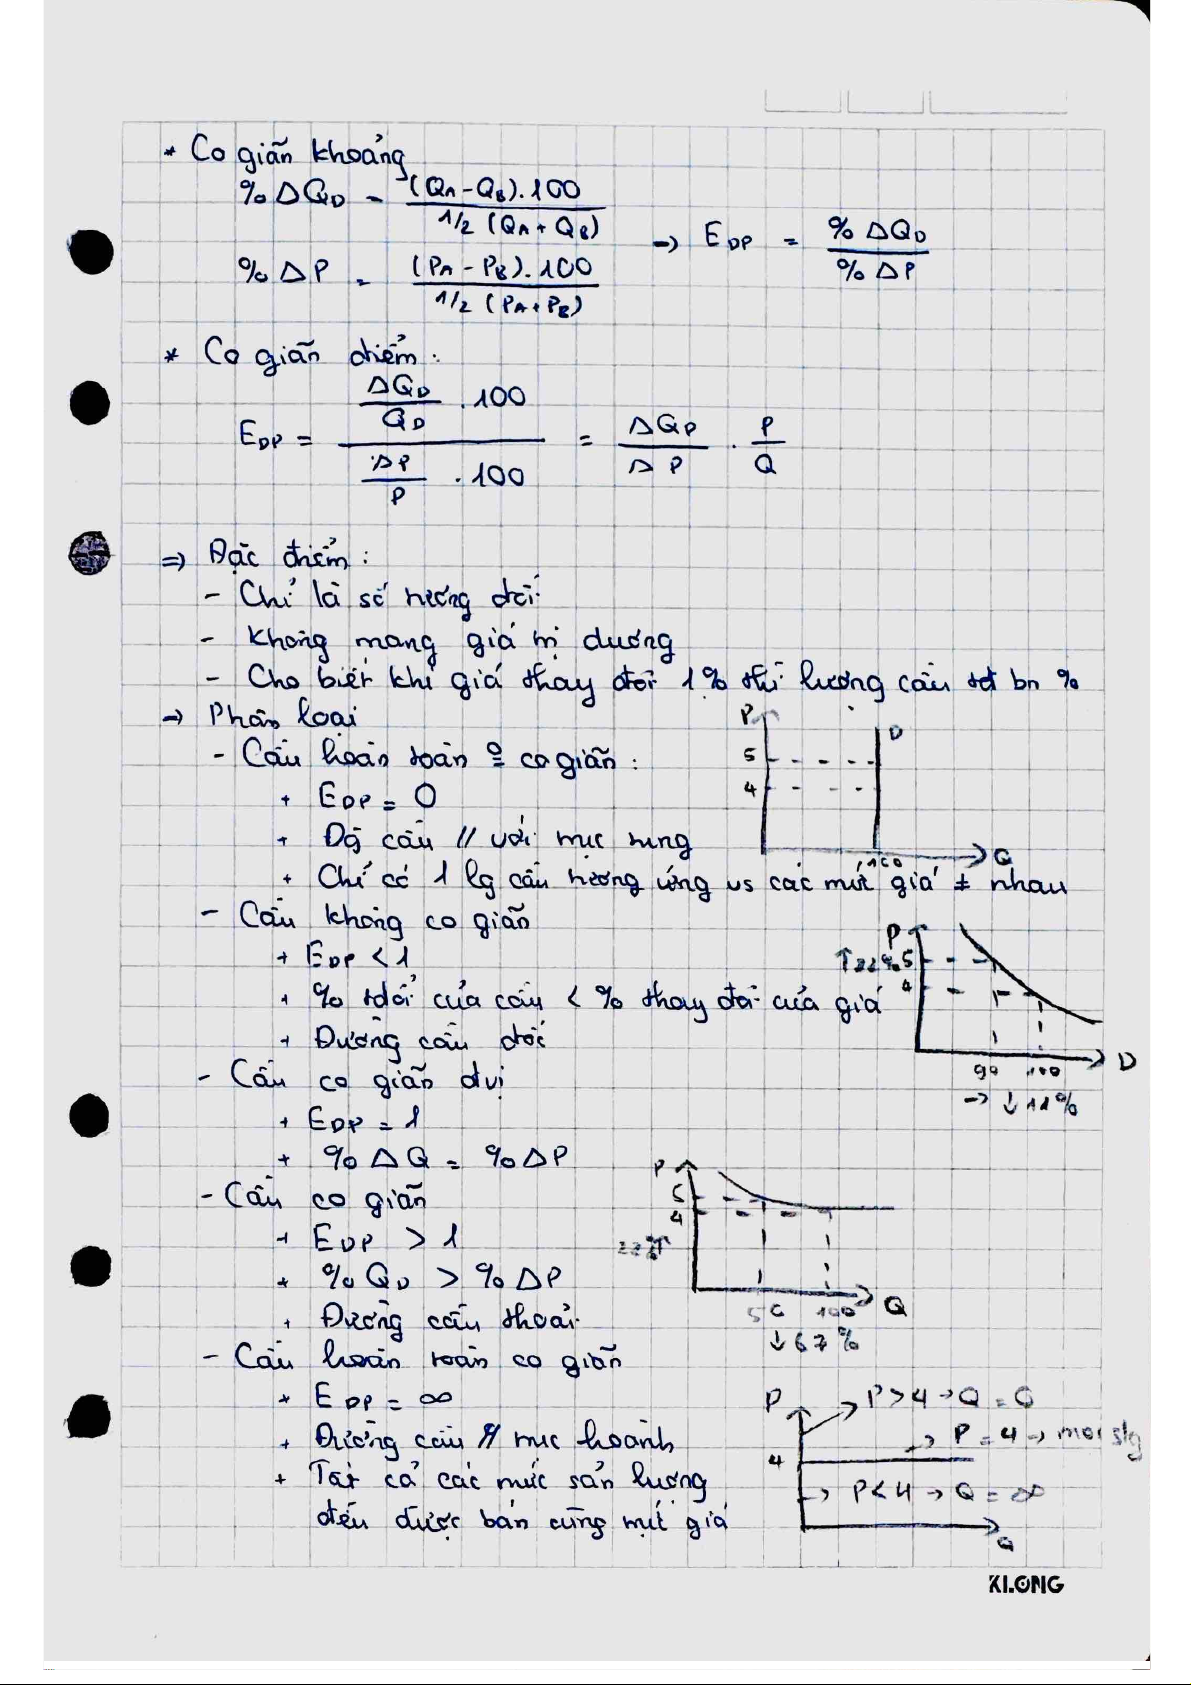 * Co giãn khoảng
%ΔQD = (QA - QB).100 / 1/2 (QA + QB)
→ EDP = %ΔQD / %ΔP
%ΔP = (PA - PB).100 / 1/2 (PA + PB)
* Co giãn điểm:
EDP = ΔQD/QD .100 / ΔP/P .100 = ΔQP/ΔP . P/Q
⇒ Đặc điểm:
- Chỉ là số tương đối
- Không mang giá trị dương
- Cho biết khi giá thay đổi 1% thì lượng cầu tđ bn %
→ Phân loại
- Cầu hoàn toàn co giãn:
+ EDP = 0
+ Đg cầu // với trục tung
+ Chỉ có 1 lg cầu tương ứng vs các mức giá ≠ nhau
P
5
4
D
100
Q
- Cầu không co giãn
+ EDP < 1
+ % tđổi của cầu < % thay đổi của giá
+ Đường cầu dốc
P
↑22% 5
4
90 100 D
→ ↓11%
- Cầu co giãn đvị
+ EDP = 1
+ %ΔQ = %ΔP
- Cầu co giãn
+ EDP > 1
+ %QD > %ΔP
+ Đường cầu thoải
P
5
4
22%↑
50 100 Q
↓67%
- Cầu hoàn toàn co giãn
+ EDP = ∞
+ Đường cầu // trục hoành
+ Tất cả các mức sản lượng
đều được bán cùng mức giá
P
→ P>4 → Q = 0
→ P = 4 → mọi slg
4
→ P<4 → Q = ∞
Q
KLONG